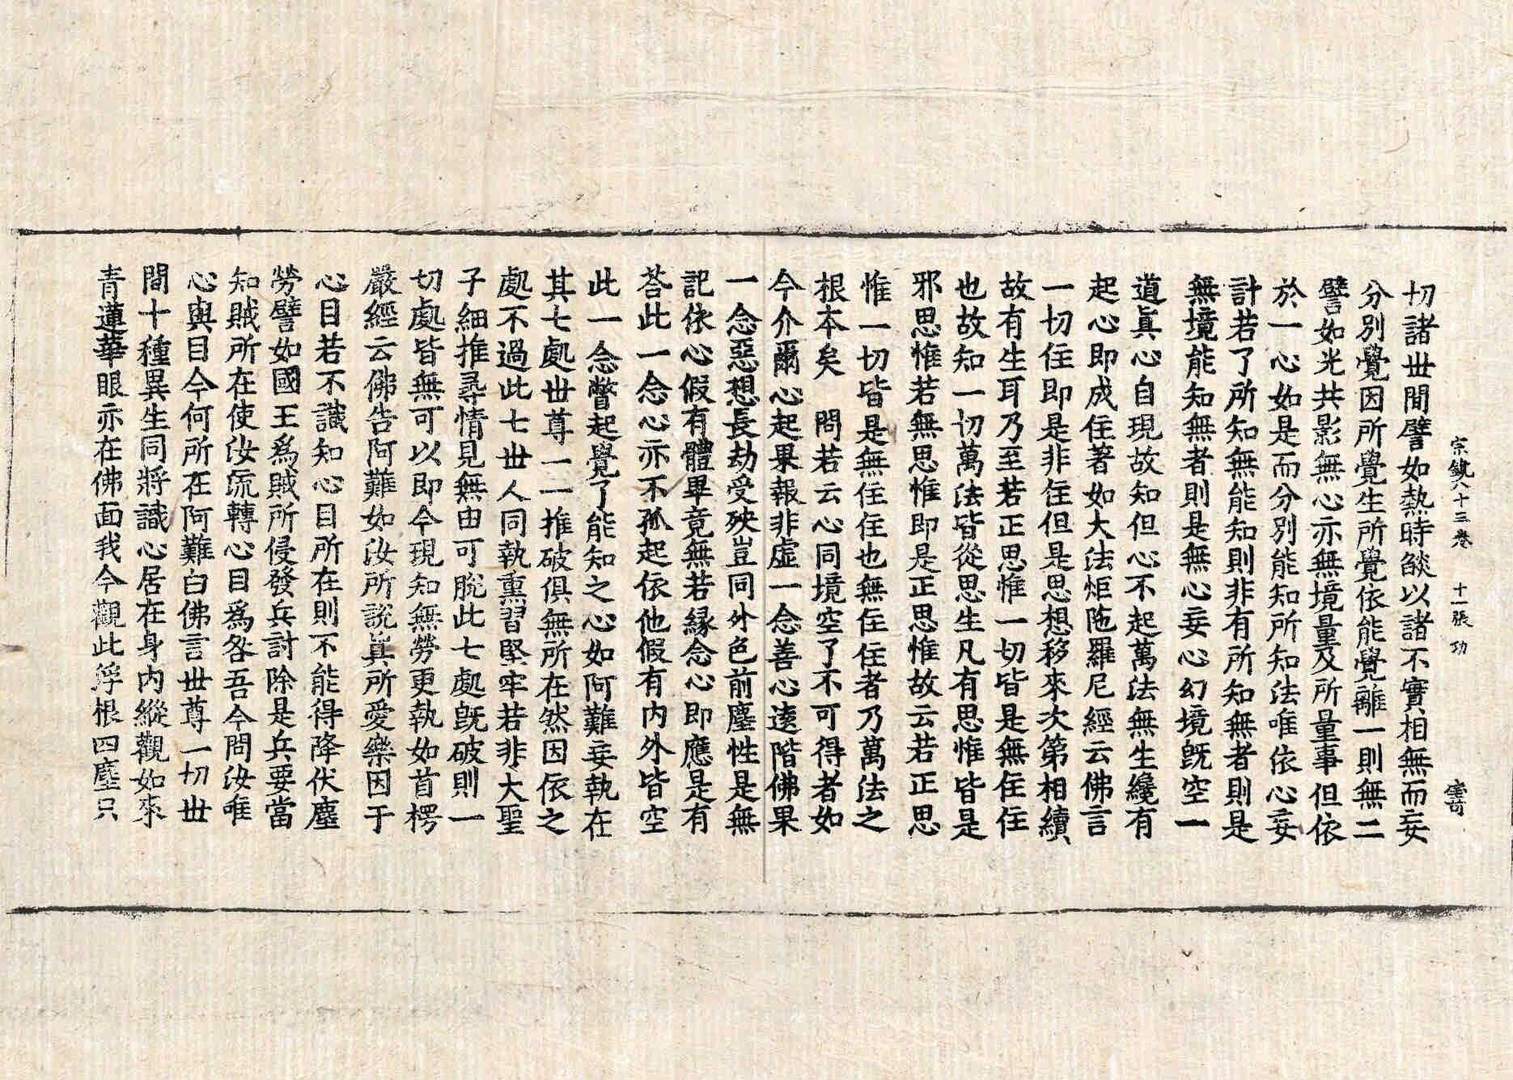 宗鏡八十三卷 十一張 功
切諸世間譬如熱時燄以諸不實相無而妄
分別覺因所覺生所覺依能覺離一則無二
譬如光共影無心亦無境量及所量事但依
於一心如是而分別能知所知法唯依心妄
計若了所知無能知則非有所知無者則是
無境能知無者則是無心妄心幻境旣空一
道眞心自現故知但心不起萬法無生纔有
起心即成住著如大法炬陁羅尼經云佛言
一切住即是非住但是思想移來次第相續
故有生耳乃至若正思惟一切皆是無住住
也故知一切萬法皆從思生凡有思惟皆是
邪思惟若無思惟即是正思惟故云若正思
惟一切皆是無住住也無住住者乃萬法之
根本矣 問若云心同境空了不可得者如
今介爾心起果報非虛一念善心遠階佛果
一念惡想長劫受殃豈同外色前塵性是無
記依心假有體畢竟無若緣念心即應是有
荅此一念心亦不孤起依他假有內外皆空
此一念瞥起覺了能知之心如阿難妄執在
其七處世尊一一推破俱無所在然因依之
處不過此七世人同執熏習堅牢若非大聖
子細推尋情見無由可脫此七處旣破則一
切處皆無可以即今現知無勞更執如首楞
嚴經云佛告阿難如汝所說眞所愛樂因于
心目若不識知心目所在則不能得降伏塵
勞譬如國王爲賊所侵發兵討除是兵要當
知賊所在使汝流轉心目爲咎吾今問汝唯
心與目今何所在阿難白佛言世尊一切世
間十種異生同將識心居在身內縱觀如來
青蓮華眼亦在佛面我今觀此浮根四塵只